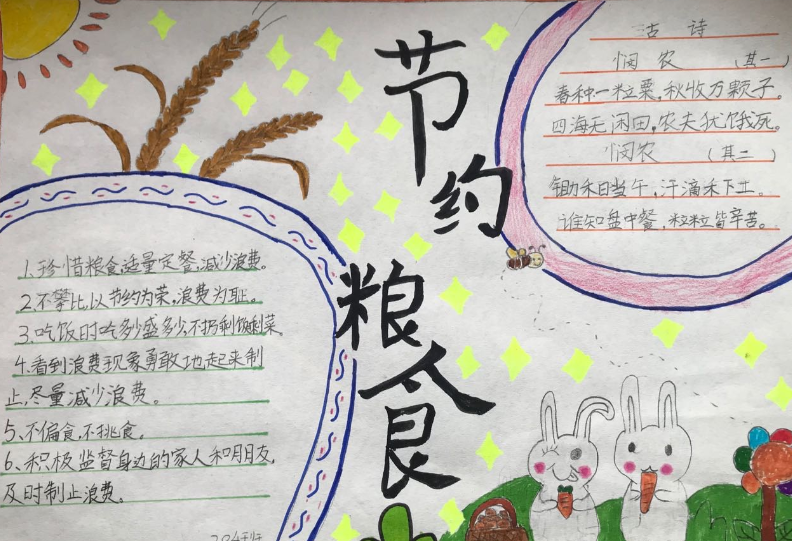 节约粮食
古诗
悯农(其一)
春种一粒粟,秋收万颗子。
四海无闲田,农夫犹饿死。
悯农(其二)
锄禾日当午,汗滴禾下土。
谁知盘中餐,粒粒皆辛苦。
1.珍惜粮食,适量定餐,减少浪费。
2.不攀比,以节约为荣,浪费为耻。
3.吃饭时吃多少盛多少,不扔剩饭剩菜
4.看到浪费现象勇敢地起来制
止,尽量减少浪费。
5、不偏食,不挑食。
6、积极监督身边的家人和朋友,
及时制止浪费。